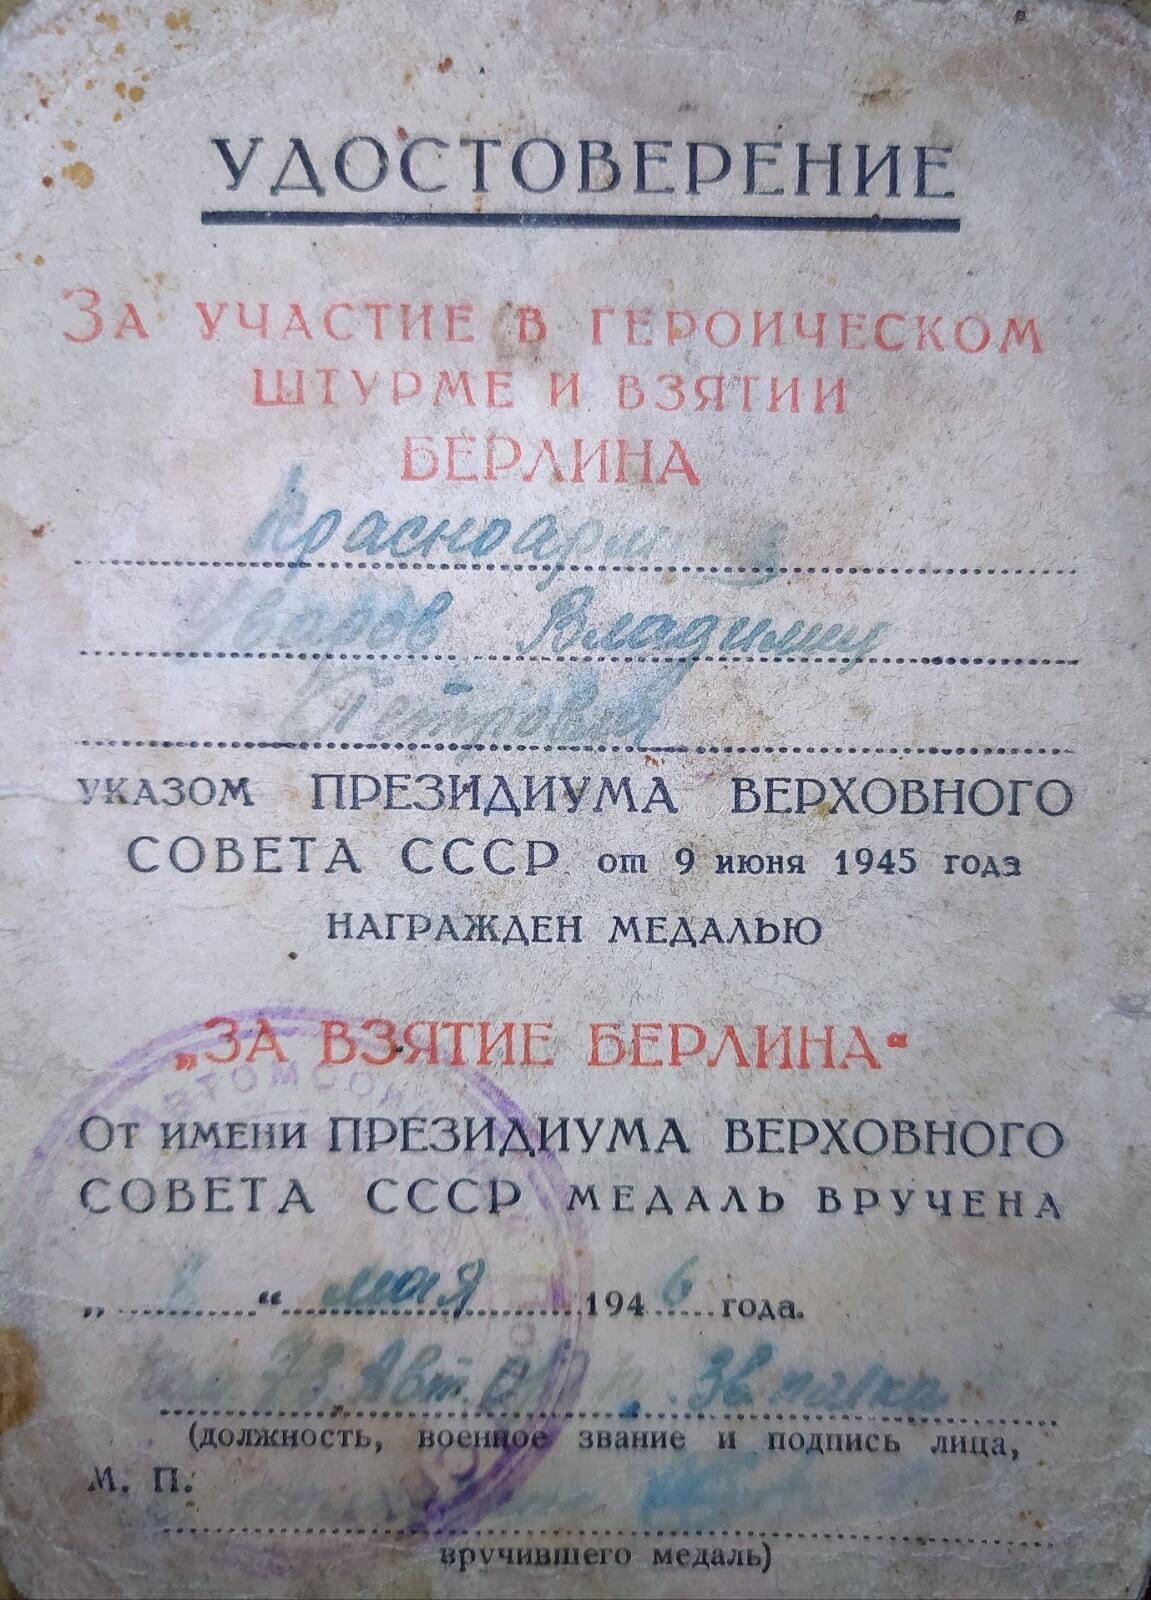 УДОСТОВЕРЕНИЕ
ЗА УЧАСТИЕ В ГЕРОИЧЕСКОМ
ШТУРМЕ И ВЗЯТИИ
БЕРЛИНА
Уваров Владимир
Петрович
УКАЗОМ ПРЕЗИДИУМА ВЕРХОВНОГО
СОВЕТА СССР от 9 июня 1945 года
НАГРАЖДЕН МЕДАЛЬЮ
„ЗА ВЗЯТИЕ БЕРЛИНА“
ОТ ИМЕНИ ПРЕЗИДИУМА ВЕРХОВНОГО
СОВЕТА СССР МЕДАЛЬ ВРУЧЕНА
„ “ мая 1946 года.
73 Авт. полка
(должность, военное звание и подпись лица,
М. П.
вручившего медаль)